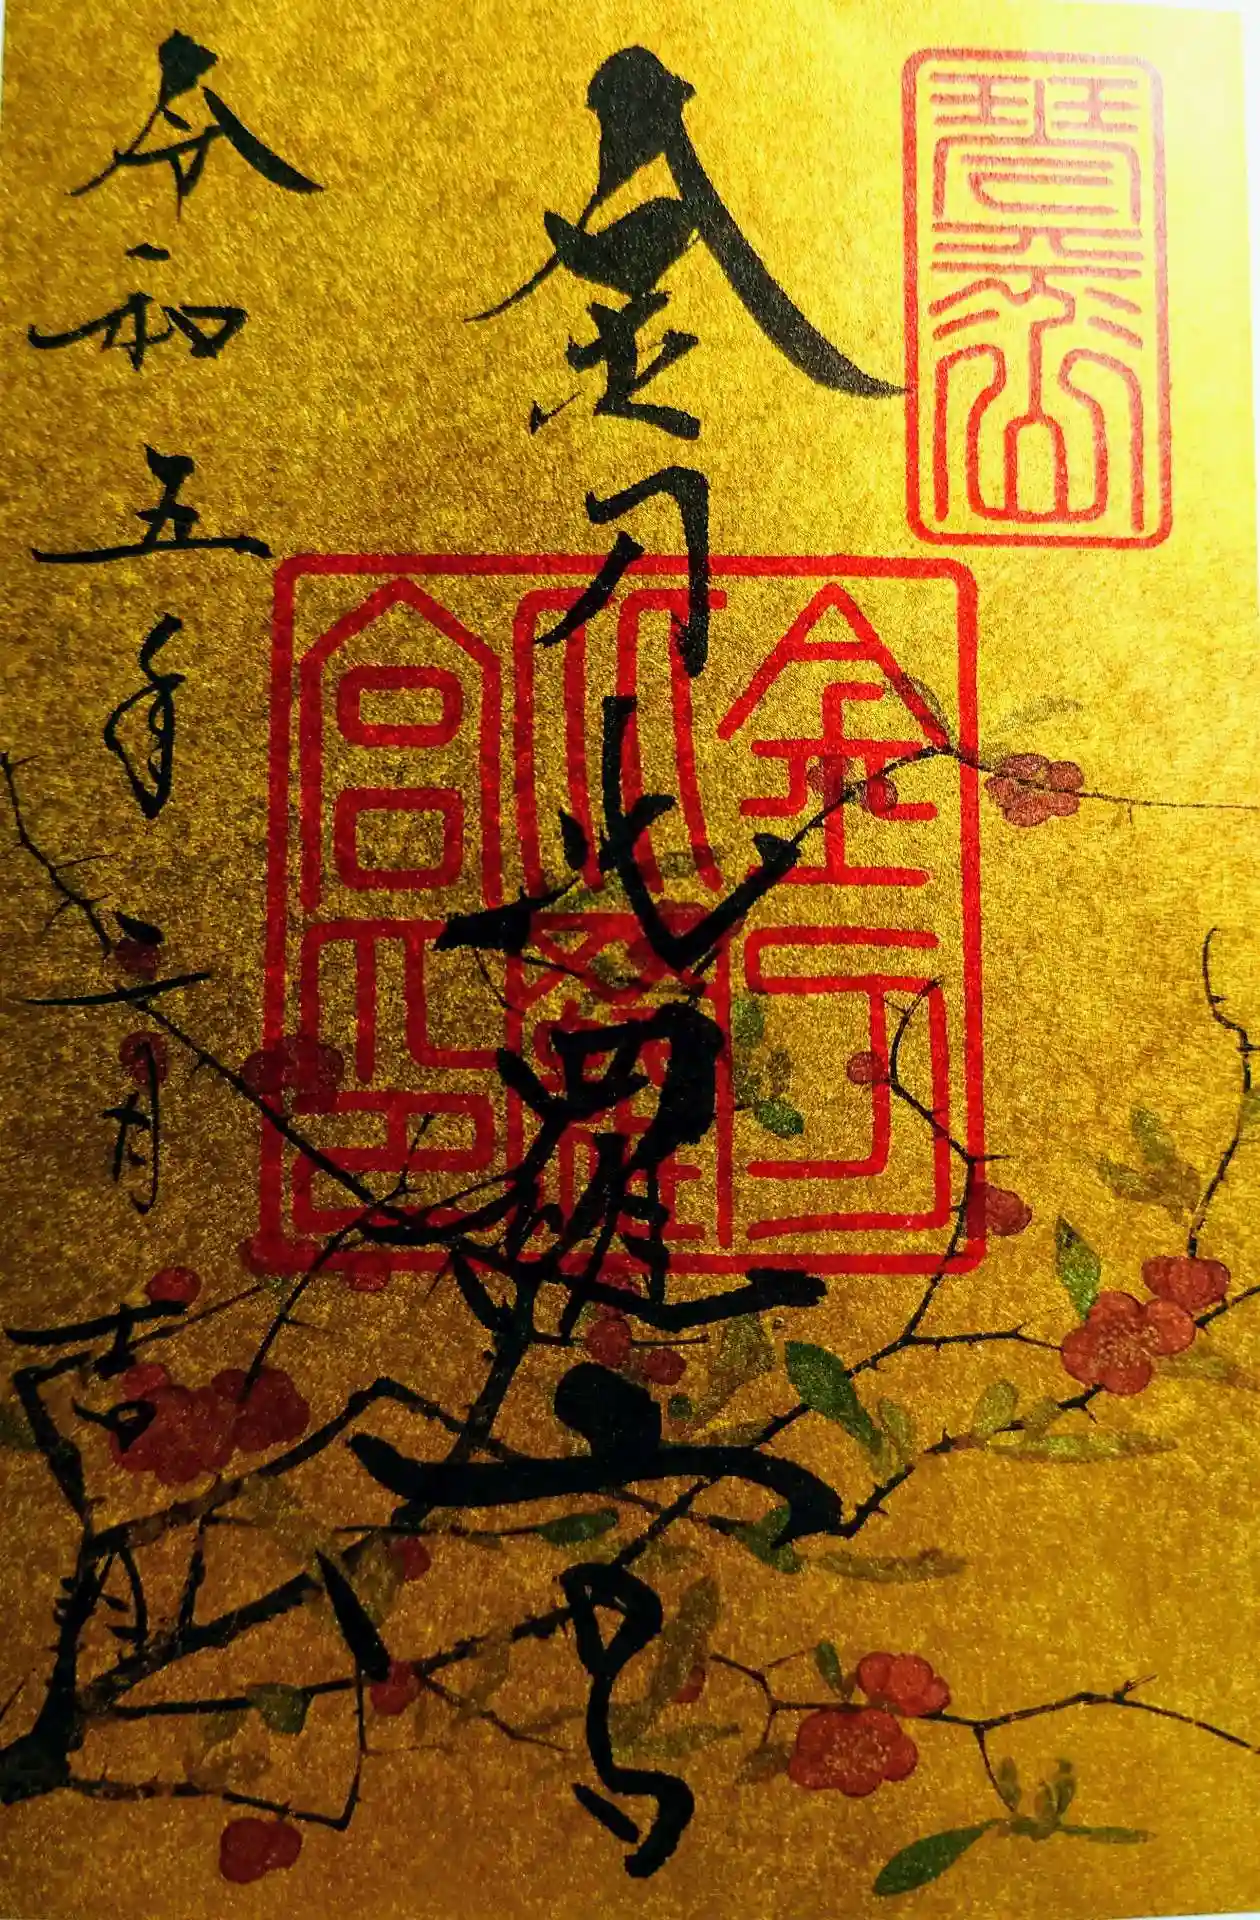 琴平山
金刀比羅宮
金刀比羅宮印
令和五年一月吉日